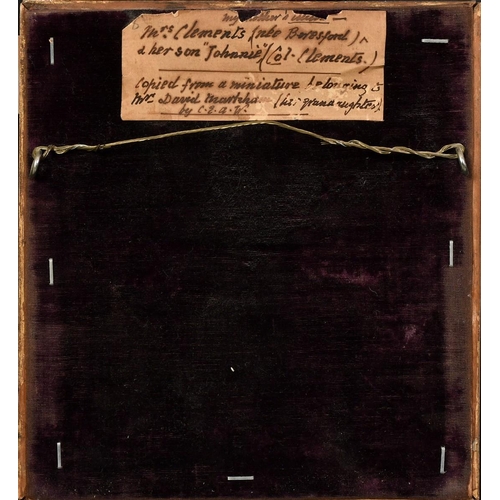 my mother's
Mrs Clements (née Beresford) ^
& her son "Johnnie" (Col. Clements.)
Copied from a miniature belonging to
Mrs David Markham (his grandaughter)
by C.E.A.W.